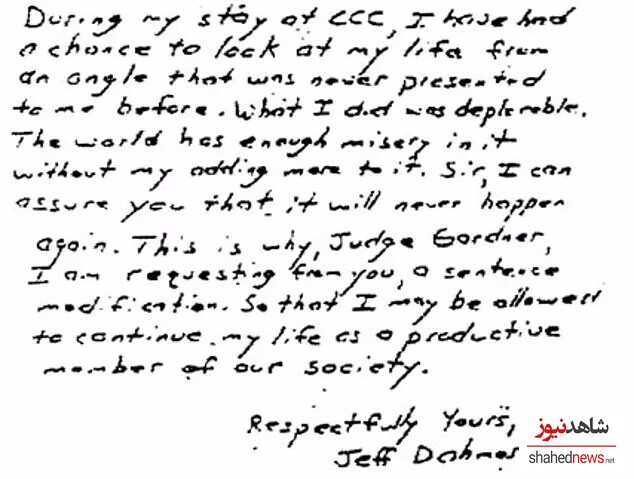 During my stay at CCC, I have had
a chance to look at my life from
an angle that was never presented
to me before. What I did was deplorable.
The world has enough misery in it
without my adding more to it. Sir, I can
assure you that it will never happen
again. This is why, Judge Gardner,
I am requesting from you, a sentence
modification. So that I may be allowed
to continue my life as a productive
member of our society.
Respectfully Yours,
Jeff Dahmer
شاهدنیوز
shahednews.net